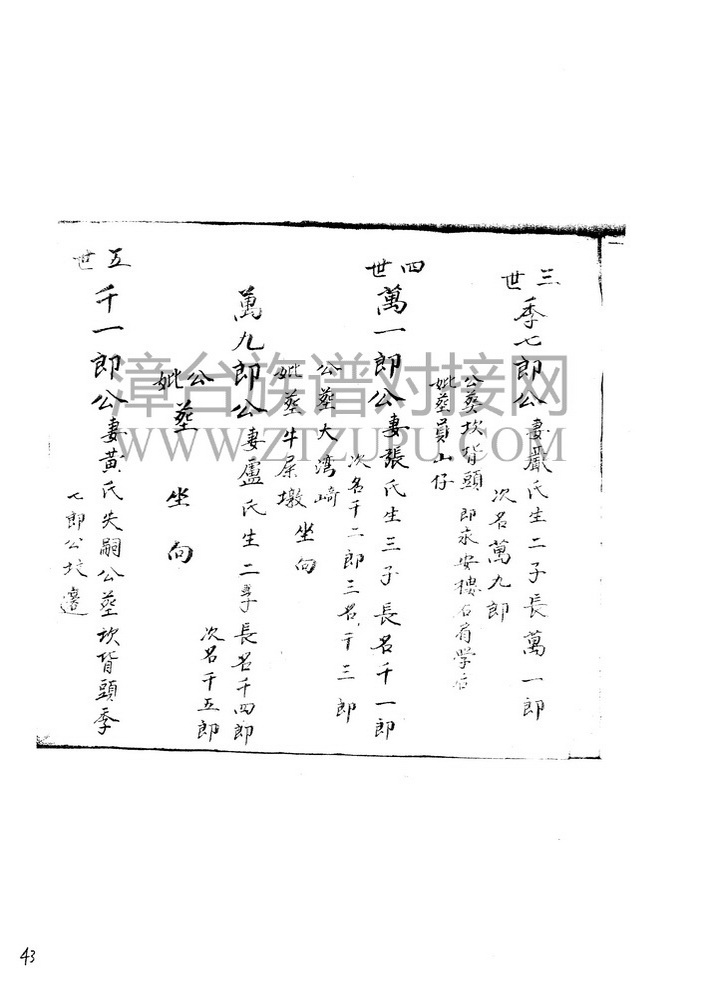 三世
季七郎公妻嚴氏生二子長萬一郎
次名萬九郎
公塟坎背頭即永安樓右肩学后
妣塟員山仔
四世
萬一郎公妻張氏生三子長名千一郎
次名千二郎三名千三郎
公塟大湾崎
妣塟牛屎墩 坐向
萬九郎公妻盧氏生二子長名千四郎
次名千五郎
公
妣塟 坐向
五世
千一郎公妻黃氏失嗣公塟坎背頭季
七郎公坟邊
漳台族谱对接网
WWW.ZTZUPU.COM
43